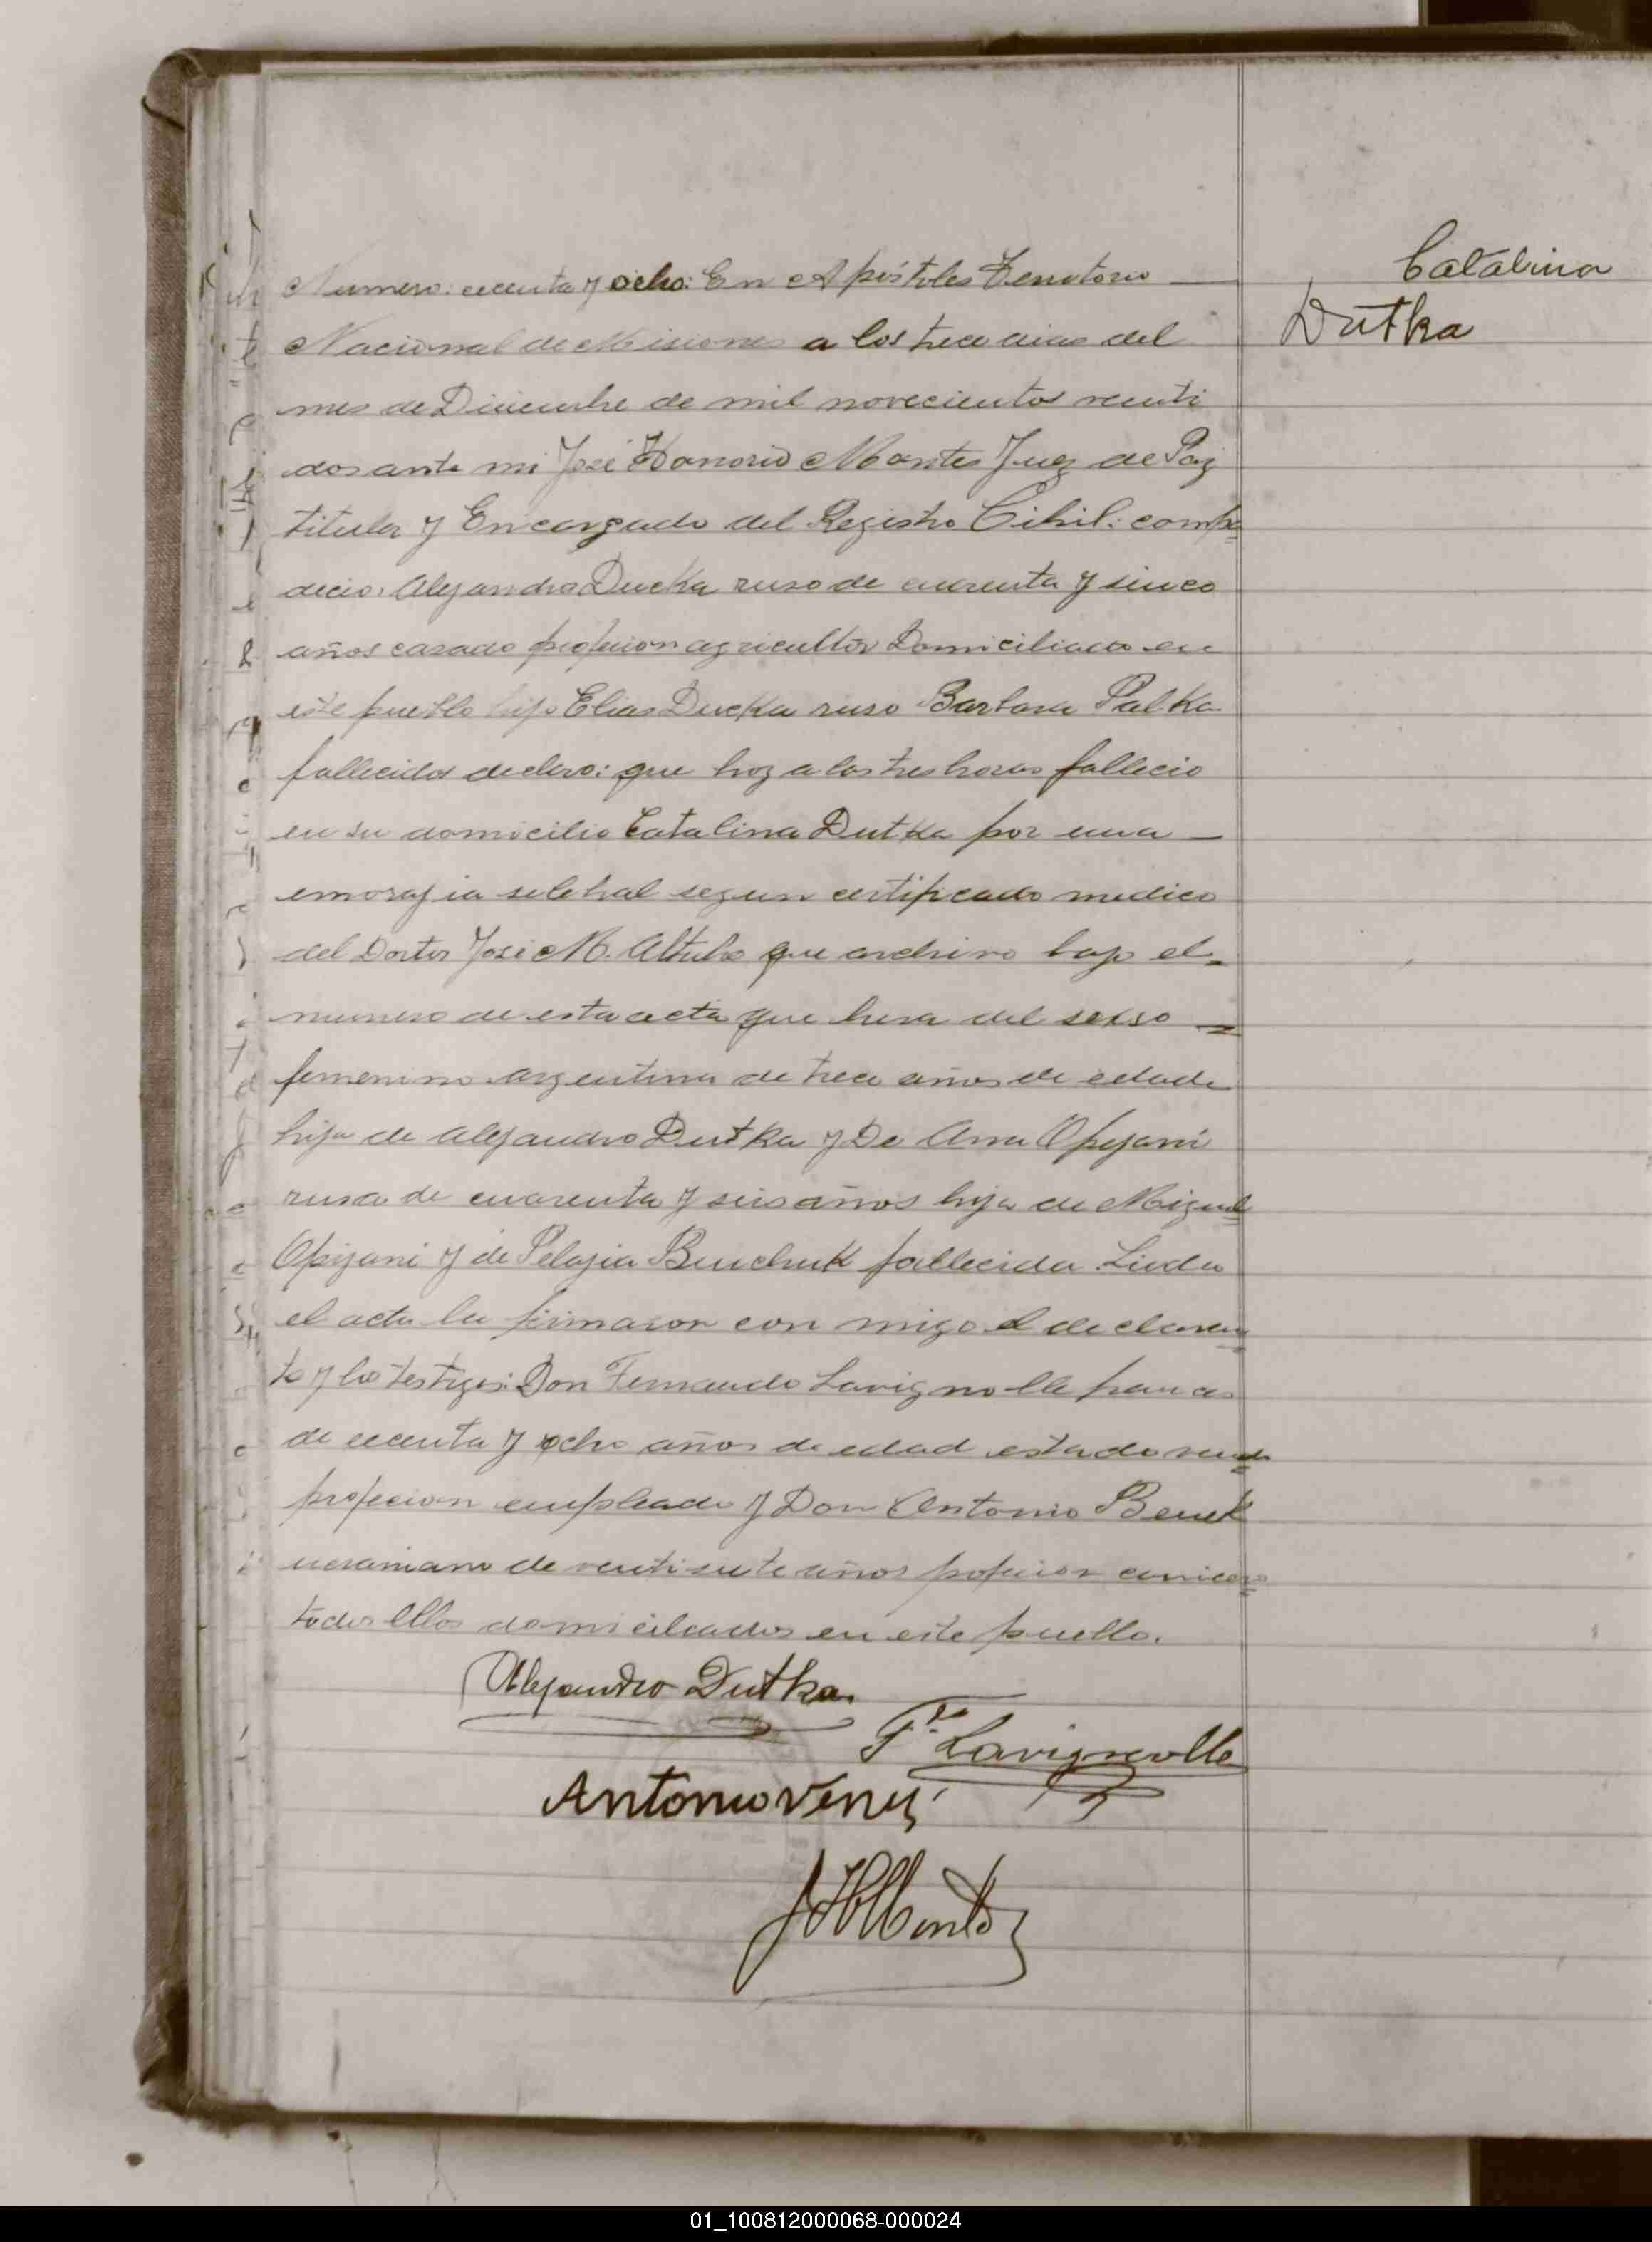 Catalina
Dutka
Numero: cecenta y ocho: En Apóstoles Territorio
Nacional de Misiones a los trece dias del
mes de Diciembre de mil novecientos venti
dos ante mi José Honorio Montes Juez de Paz
titular y Encargado del Registro Cibil: compa
decio: Alejandro Ducka ruso de cuarenta y sinco
años casado profecion agricultor Domiciliado en
este pueblo hijo Elias Ducka ruso Barbara Palka
fallecida declaro: que hoy a las tres horas fallecio
en su domicilio Catalina Dutka por una
emorajia selebral segun certificado medico
del Doctor José M. que archivo bajo el
numero de esta acta que hera del sexso
femenino argentina de trece años de edad
hija de Alejandro Dutka y De Ana Opejani
rusa de cuarenta y seis años hija de Miguel
Opijani y de Pelagia Buuchuk fallecida. Leida
el acta la firmaron con migo el declaran
te y los testigos: Don Fernando Lavignolle frances
de cecenta y ocho años de edad estado viudo
profecion empleado y Don Antonio Benek
ucraniano de ventisiete años profecion
todos Ellos domiciliados en este pueblo.
Alejandro Dutka
F. Lavignolle
Antonio
JHMontes
01_100812000068-000024